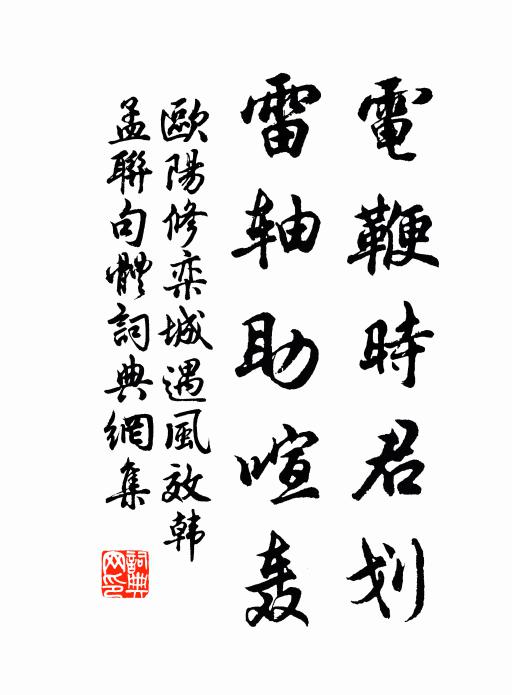 電鞭時君划
雷轴助喧轰
歐陽修栾城遇風效韩
孟聯句體詞典網集
詞典网印